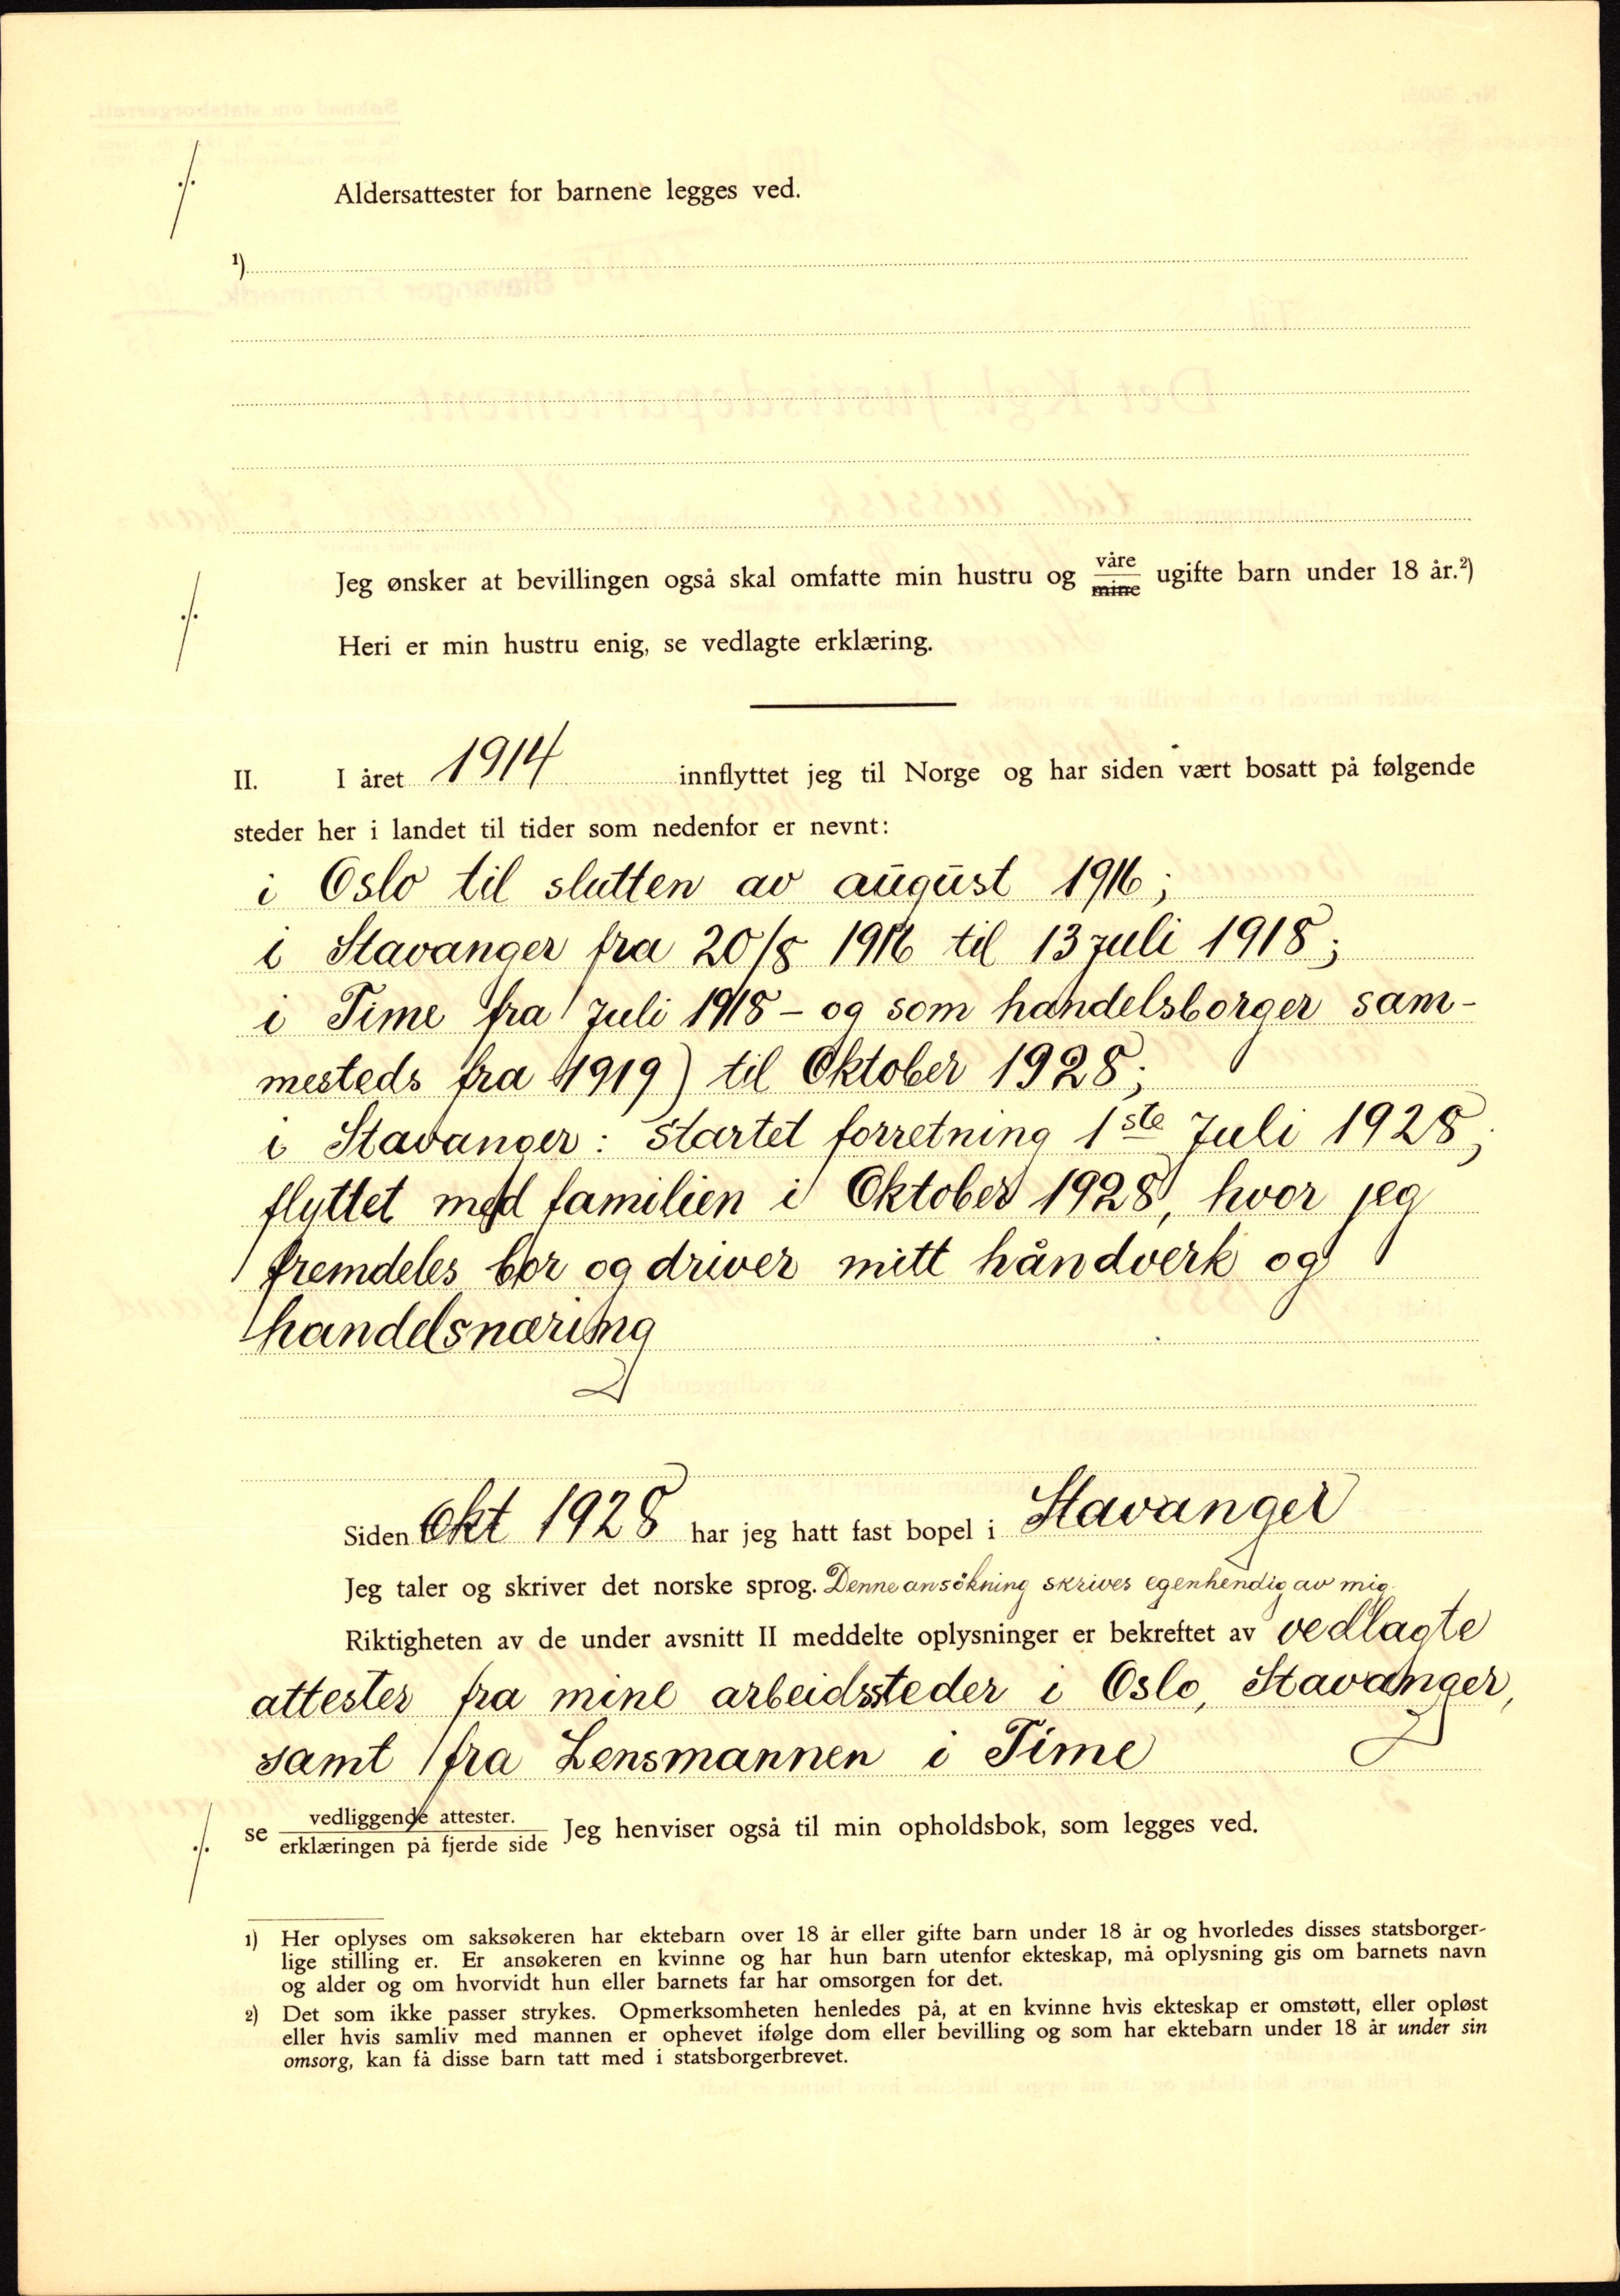 ./.
Aldersattester for barnene legges ved.
¹)
Jeg ønsker at bevillingen også skal omfatte min hustru og våre
mine ugifte barn under 18 år.²)
./.
Heri er min hustru enig, se vedlagte erklæring.
II. I året 1914 innflyttet jeg til Norge og har siden vært bosatt på følgende
steder her i landet til tider som nedenfor er nevnt:
i Oslo til slutten av august 1916;
i Stavanger fra 20/8 1916 til 13 Juli 1918;
i Time fra Juli 1918 – og som handelsborger sam-
mesteds fra 1919) til Oktober 1928;
i Stavanger: startet forretning 1ste Juli 1928;
flyttet med familien i Oktober 1928, hvor jeg
fremdeles bor og driver mitt håndverk og
handelsnæring
Siden Okt 1928 har jeg hatt fast bopel i Stavanger
Jeg taler og skriver det norske sprog. Denne ansökning skrives egenhendig av mig.
Riktigheten av de under avsnitt II meddelte oplysninger er bekreftet av vedlagte
attester fra mine arbeidssteder i Oslo, Stavanger,
samt fra Lensmannen i Time
./.
se vedliggende attester.
erklæringen på fjerde side Jeg henviser også til min opholdsbok, som legges ved.
1) Her oplyses om saksøkeren har ektebarn over 18 år eller gifte barn under 18 år og hvorledes disses statsborger-
lige stilling er. Er ansøkeren en kvinne og har hun barn utenfor ekteskap, må oplysning gis om barnets navn
og alder og om hvorvidt hun eller barnets far har omsorgen for det.
2) Det som ikke passer strykes. Opmerksomheten henledes på, at en kvinne hvis ekteskap er omstøtt, eller opløst
eller hvis samliv med mannen er ophevet ifølge dom eller bevilling og som har ektebarn under 18 år under sin
omsorg, kan få disse barn tatt med i statsborgerbrevet.